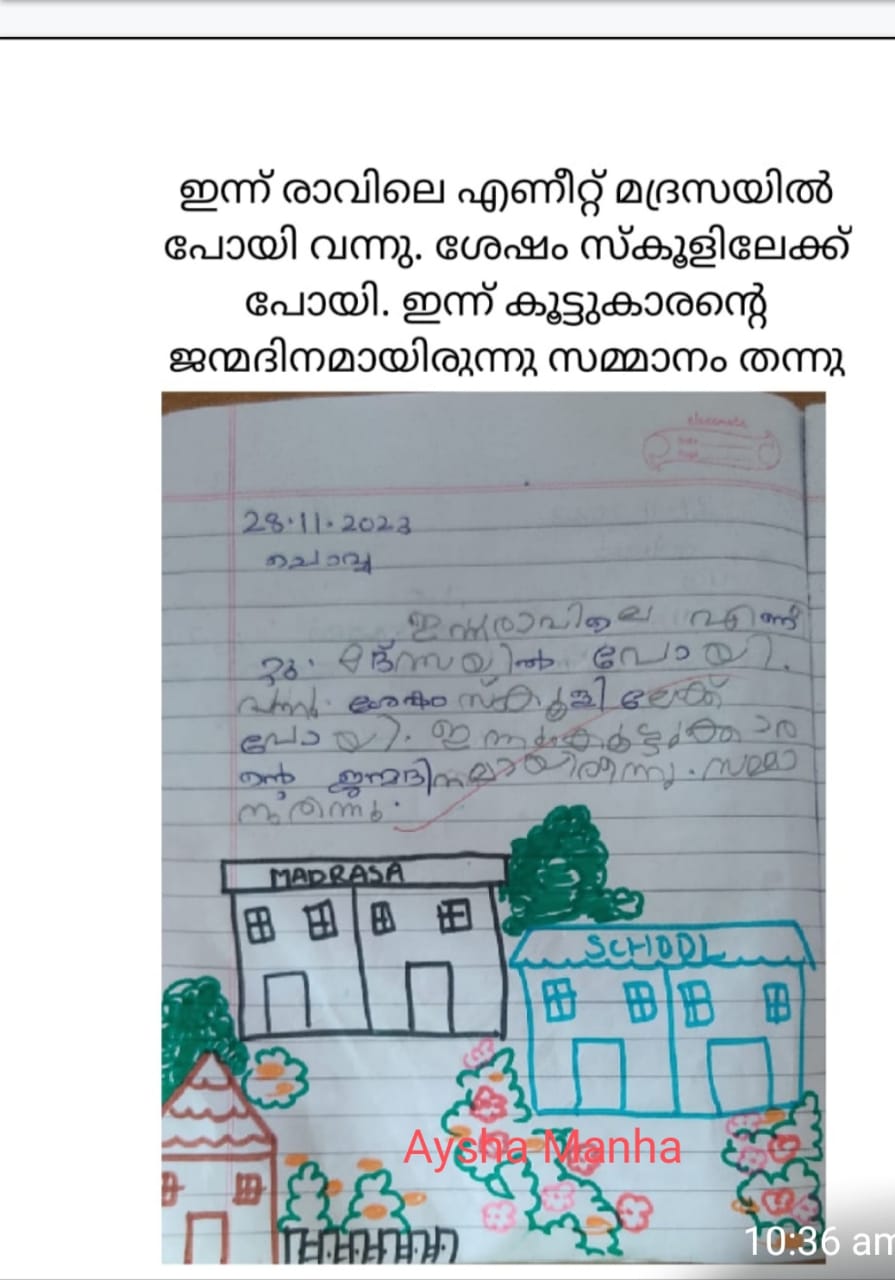 ഇന്ന് രാവിലെ എണീറ്റ് മദ്രസയിൽ
പോയി വന്നു. ശേഷം സ്കൂളിലേക്ക്
പോയി. ഇന്ന് കൂട്ടുകാരന്റെ
ജന്മദിനമായിരുന്നു സമ്മാനം തന്നു
classmate
28.11.2023
ചൊവ്വ
ഇന്നുരാവിലെ എണീ
റ്റു. മദ്റസയിൽ പോയി.
വന്നു. ശേഷം സ്കൂളിലേക്ക്
പോയി. ഇന്നു കൂട്ടുക്കാര
ന്റെ ജന്മദിനമായിരുന്നു. സമ്മാ
നംതന്നു.
MADRASA
SCHOOL
Aysha Manha
10:36 am